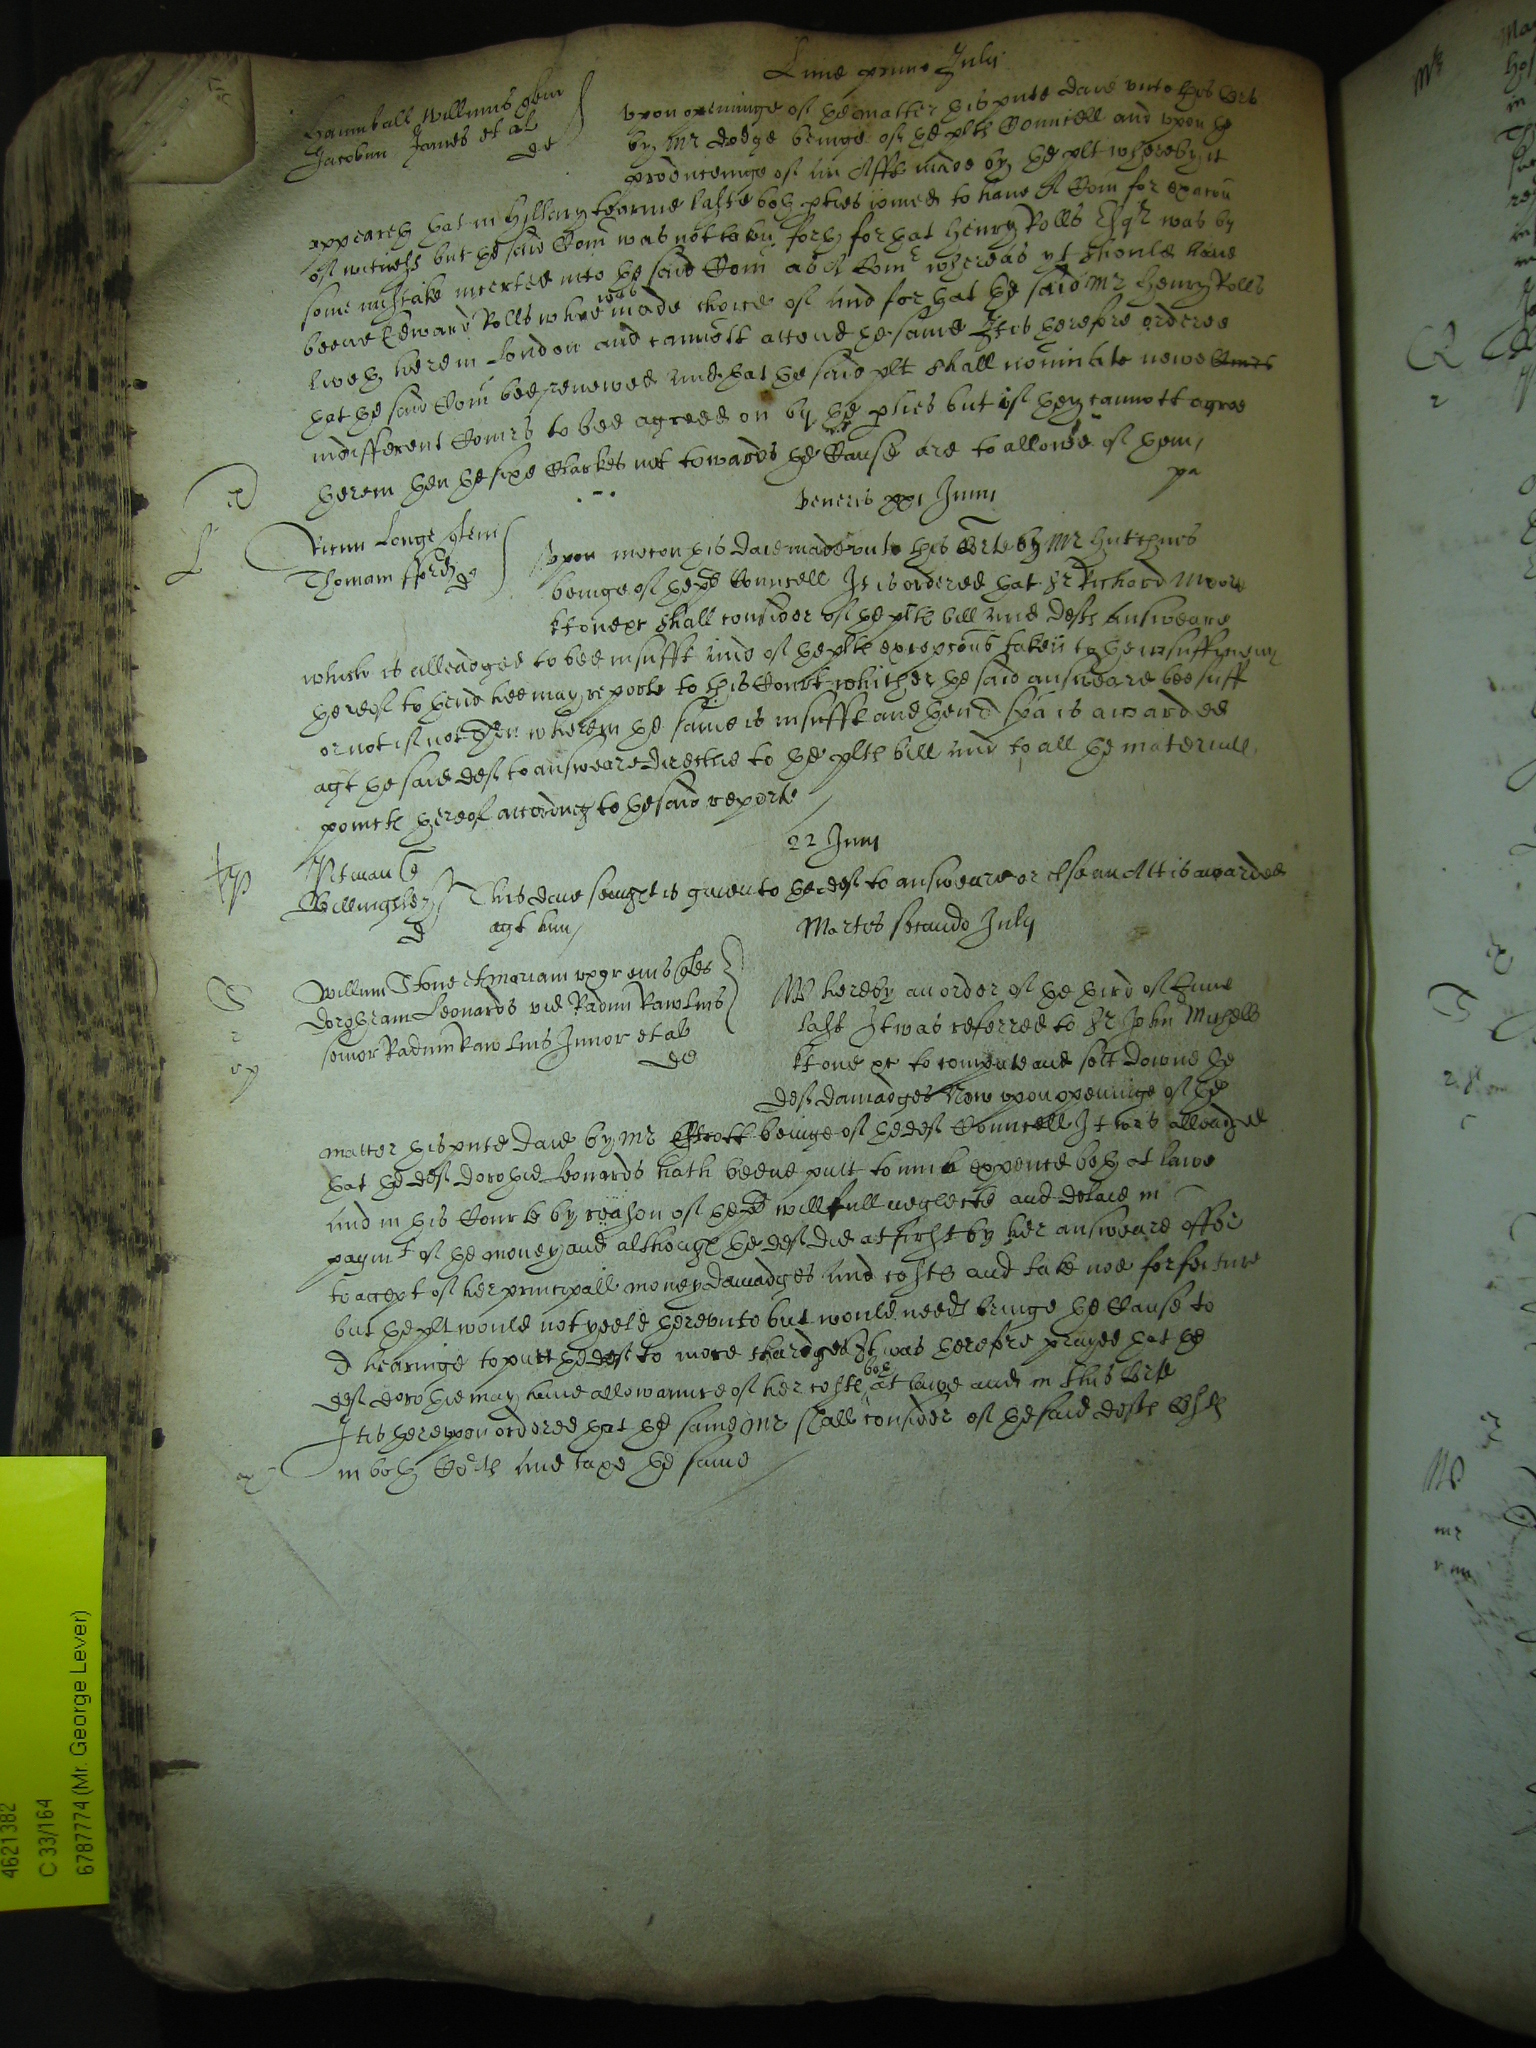 Lune primo July
Hanniball Willims quer
Jacobum James et al
de
vpon openinge of the matter this pnte daie vnto this Cort
by Mr dodge beinge of the plts Councell and vpon the
produceinge of an Afft made by the plt whereby it
appeareth that in Hyllary tearme laste both pties ioined to haue A Com for exacon
of witness but the said Com was not taken forth for that Henry Rolls Esqr was by
some mistake incerted into the said Com as A Comr whereas yt should haue
beene Edward Rolls whoe was made choice of and for that the said Mr Henry Rolls
liveth here in London and cannott attend the same It is therefore ordered
that the said Com bee renewed and that the said plt shall nominate newe Comrs
indifferent Comrs to bee agreed on by the pties but if they cannott agree
therein then the sixe Clarkes not towards the Cause are to allowe of them
pa
Veneris xxi Junii
Longe quer
Thomam fforth
de
Vpon mocon this daie made vnto this Corte by Mr Hutchins
beinge of the pl Councell It is ordered that Sr Richard Moore
kt one xc shall consider of the plts bill and defts answeare
which is alleadged to bee insufft and of the plts excepcons taken to the insufficiency
thereof to thend hee may reporte to this Court whither the said answeare bee suff
or not if not then wherein the same is insufft and then a spa is awarded
agt the said deft to answeare directlie to the plts bill and to all the materiall
pointes thereof according to the said reporte
22 Junii
Pitman Q
Billingsley
d
This daie seaght is given to the deft to answeare or else an Att is awarded
agt him
Martes secundo July
Willum Stone et Mariam vxor eius Quer
Dorotheam Leonards vid Radum Rawlins
senior Radum Rawlins Junior et al
de
Whereby an order of the third of June
last It was referred to Sr John Michell
kt one xc to compute and sett downe the
deft damadges Now vpon openinge of the
matter this pnte daie by Mr Estcott beinge of the deft Councell It was alleadged
that the deft dorothie Leonards hath beene putt to much expence both at lawe
and in this Courte by reason of the pl willfull neglecte and delaie in
paymt of the money and although the deft did at first by her answeare offer
to accept of her principall money damadges and costs and take noe forfeiture
but the plt would not yeeld therevnto but would needs bringe the Cause to
A hearinge to putt the deft to more chardges It was therefore prayed that the
deft dorothie may haue allowannce of her costs both at lawe and in this Corte
It is therevpon ordered that the same Mr shall consider of the said defts Costs
in both Corts and taxe the same
4621382
C 33/164
6787774 (Mr. George Lever)